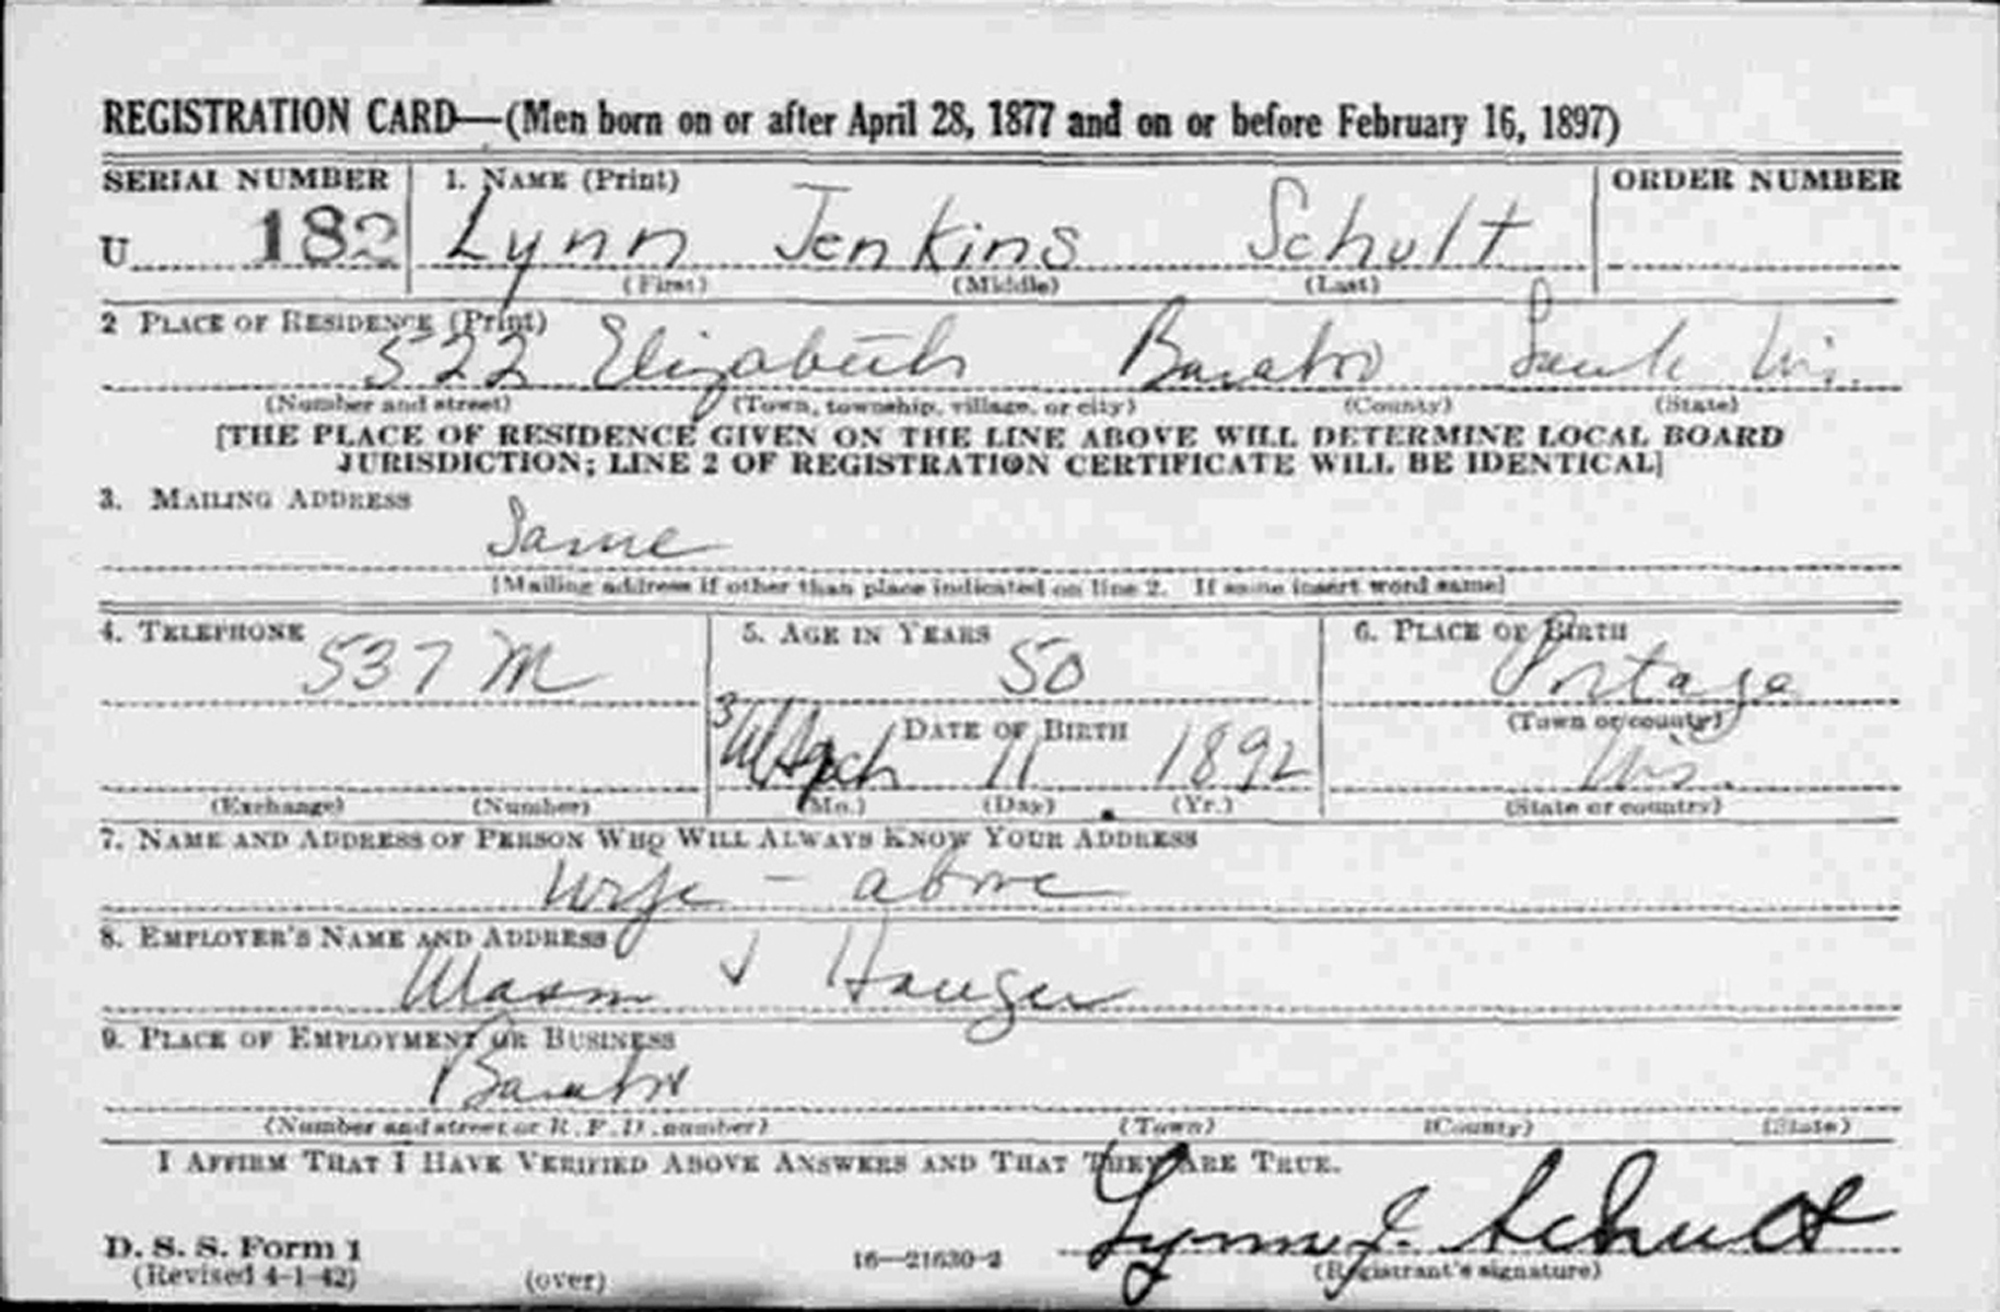 REGISTRATION CARD—(Men born on or after April 28, 1877 and on or before February 16, 1897)
SERIAL NUMBER 1. NAME (Print) ORDER NUMBER
U 182 Lynn Jenkins Schult
(First) (Middle) (Last)
2 PLACE OF RESIDENCE (Print)
522 Elizabeth Baraboo Sauk Wis.
(Number and street) (Town, township, village, or city) (County) (State)
[THE PLACE OF RESIDENCE GIVEN ON THE LINE ABOVE WILL DETERMINE LOCAL BOARD
JURISDICTION; LINE 2 OF REGISTRATION CERTIFICATE WILL BE IDENTICAL]
3. MAILING ADDRESS
Same
[Mailing address if other than place indicated on line 2. If same insert word same]
4. TELEPHONE 5. AGE IN YEARS 6. PLACE OF BIRTH
537 M 50 Portage
DATE OF BIRTH (Town or county)
3 11 1892 Wis.
(Exchange) (Number) (Mo.) (Day) (Yr.) (State or country)
7. NAME AND ADDRESS OF PERSON WHO WILL ALWAYS KNOW YOUR ADDRESS
Wife - above
8. EMPLOYER'S NAME AND ADDRESS
9. PLACE OF EMPLOYMENT OR BUSINESS
Baraboo
(Number and street or R. F. D. number) (Town) (County) (State)
I AFFIRM THAT I HAVE VERIFIED ABOVE ANSWERS AND THAT THEY ARE TRUE.
Lynn J. Schult
D. S. S. Form 1
(Revised 4-1-42) (over) 16—21630-2 (Registrant's signature)